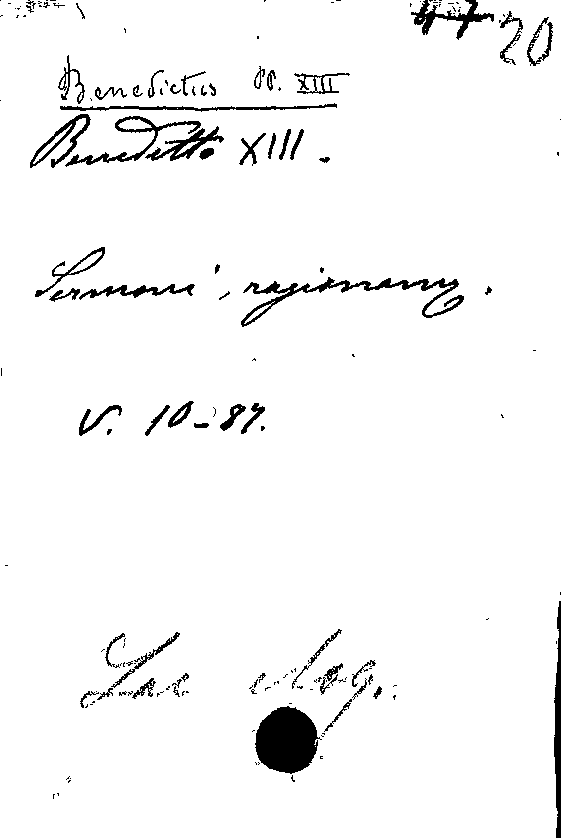 47 20
Benedictus PP. XIII
Benedetto XIII.
Sermoni, ragionam.
V. 10-87.